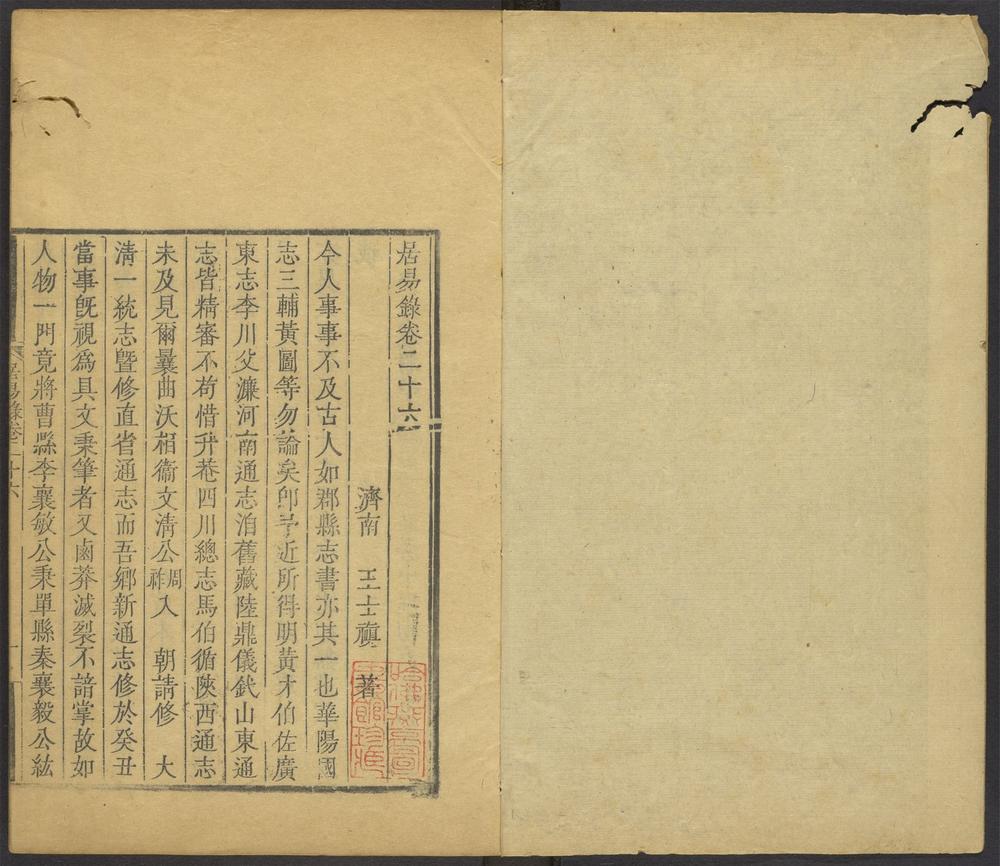 居易錄卷二十六
濟南 王士禛 著
今人事事不及古人如郡縣志書亦其一也華陽國
志三輔黃圖等勿論矣即予近所得明黃才伯佐廣
東志李川父濂河南通志洎舊藏陸鼎儀釴山東通
志皆精審不苟惜升菴四川總志馬伯循陝西通志
未及見爾曩曲沃相衞文清公周祚入 朝請修 大
清一統志暨修直省通志而吾鄉新通志修於癸丑
當事旣視爲具文秉筆者又鹵莽滅裂不諳掌故如
人物一門竟將曹縣李襄敏公秉單縣秦襄毅公紘
居易錄卷二十六
一